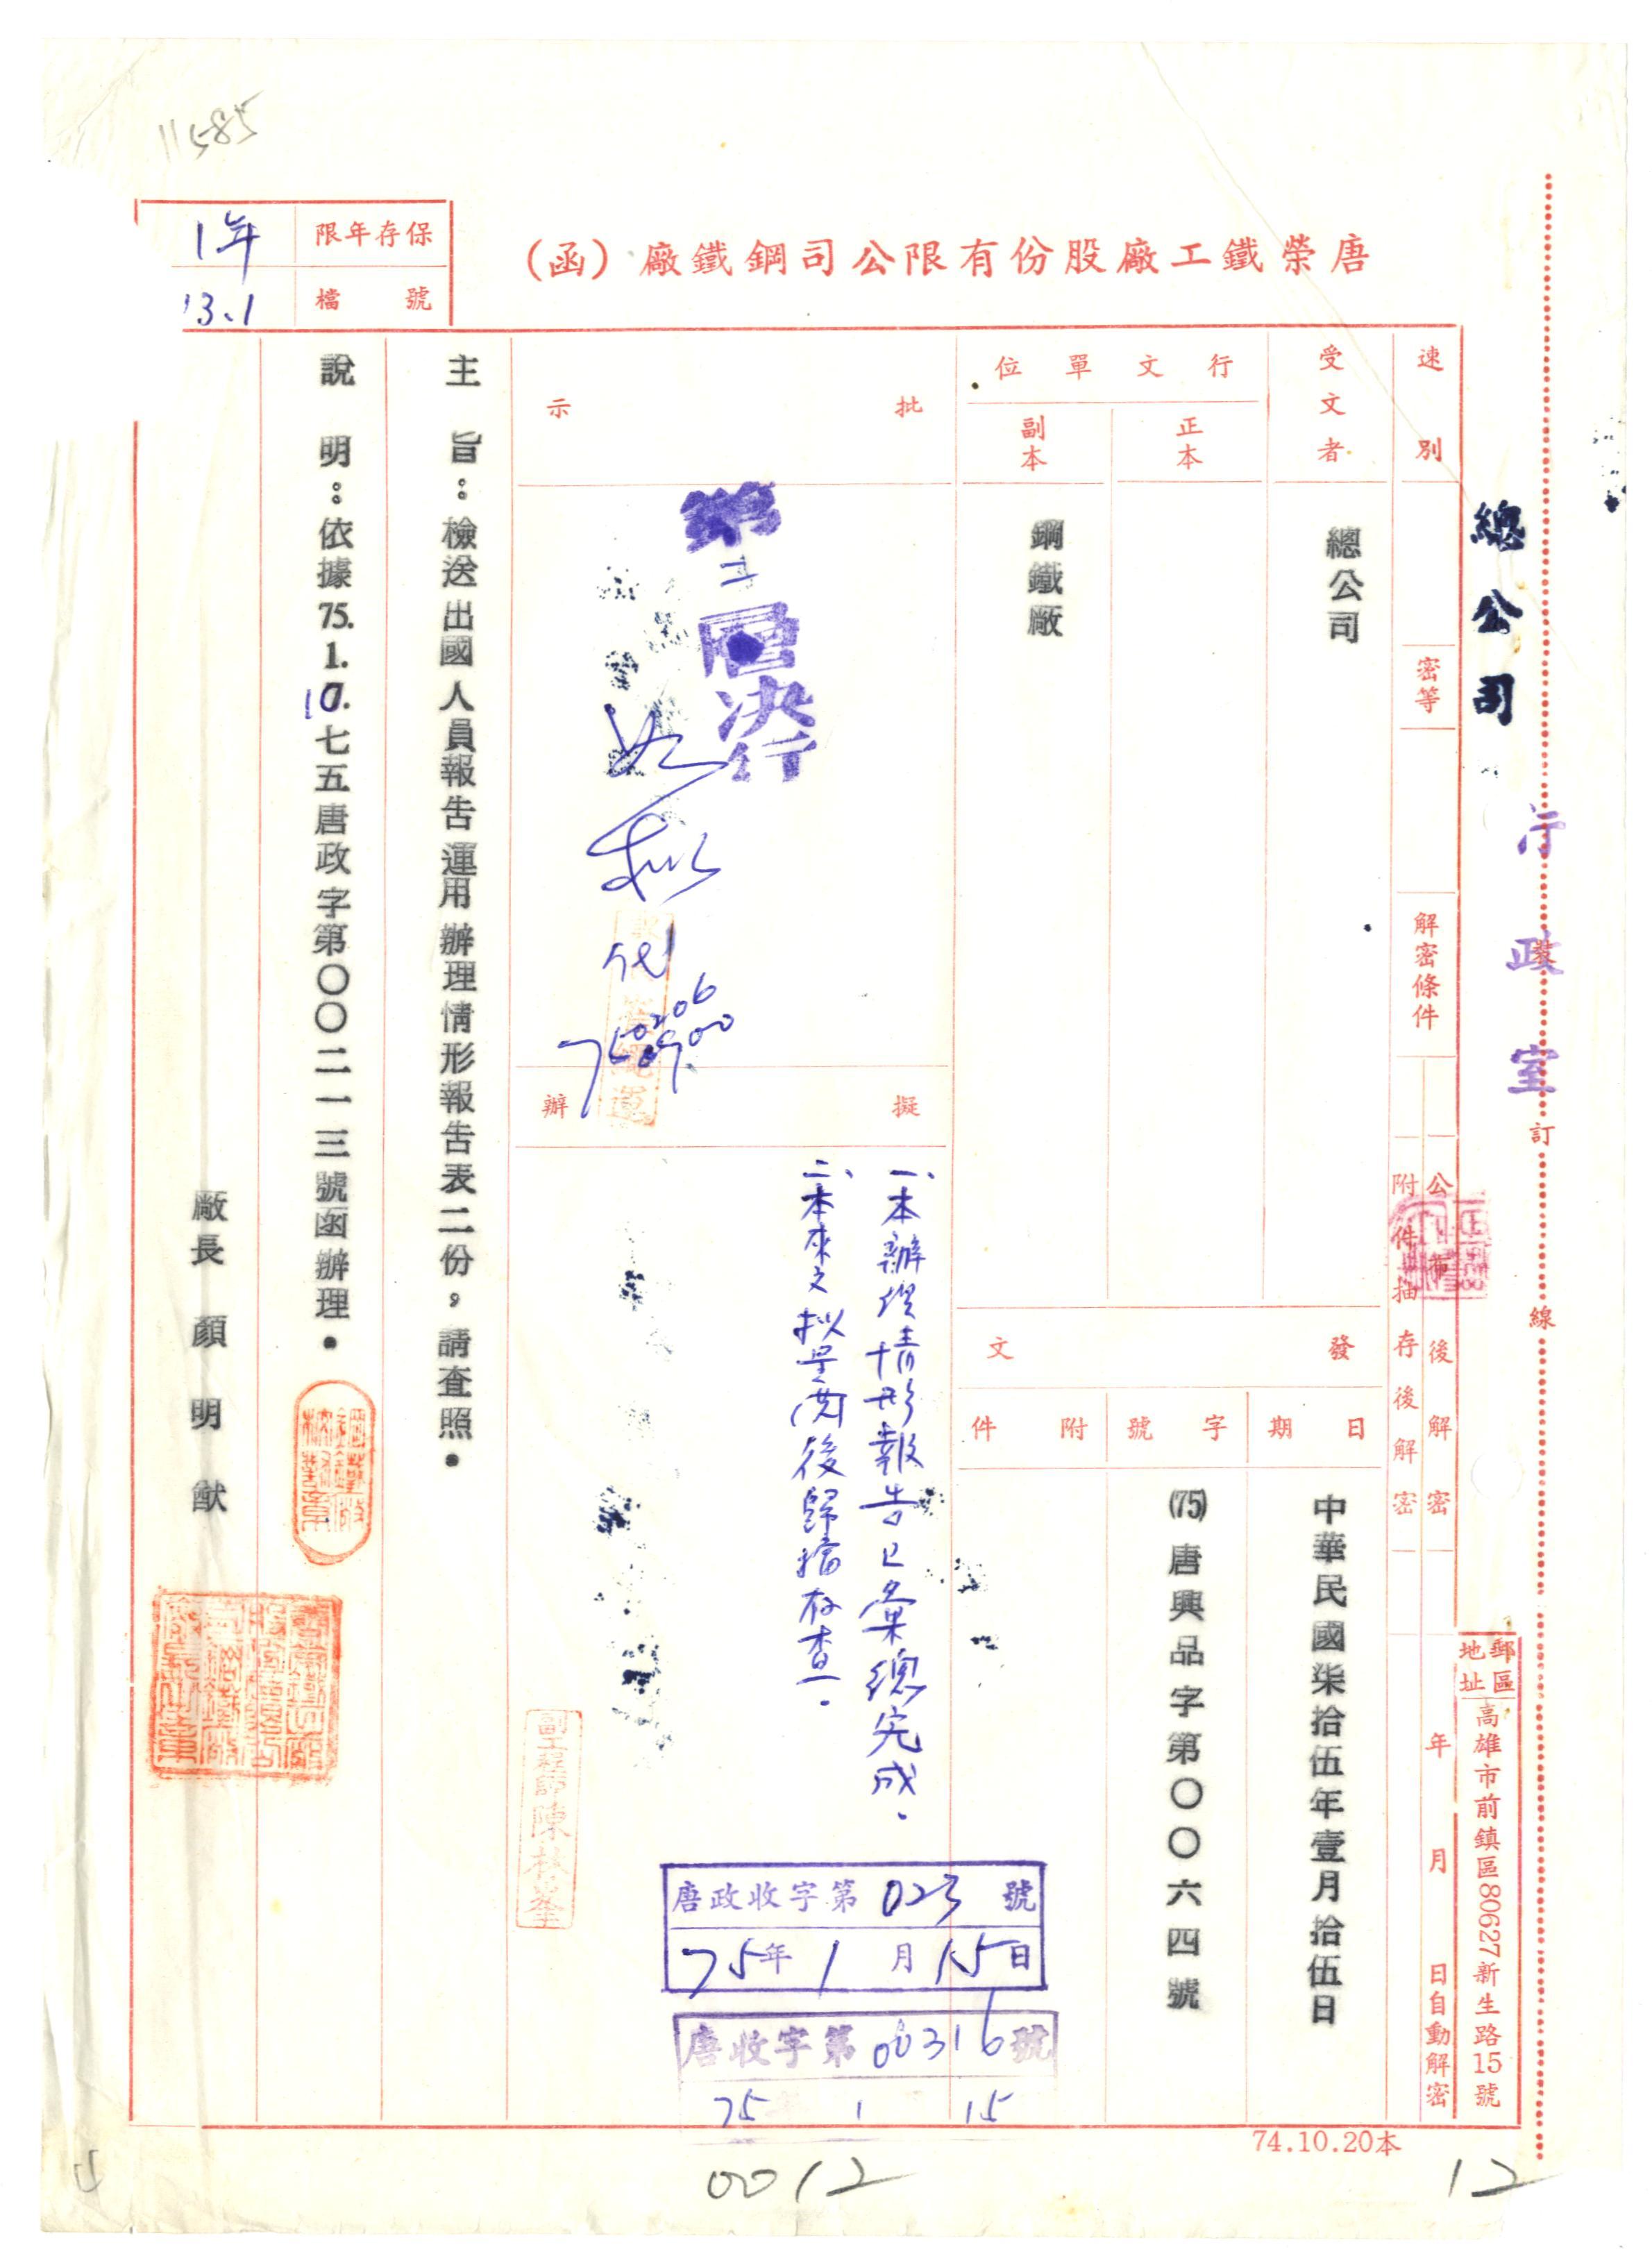 11585
保存年限
1年
檔號
13.1
唐榮鐵工廠股份有限公司鋼鐵廠（函）
總公司
行政室
裝
訂
線
郵區地址
高雄市前鎮區80627新生路15號
速別
密等
解密條件
公布後解密
附件抽存後解密
年月日自動解密
受文者
總公司
行文單位
正本
副本
鋼鐵廠
發文
日期
中華民國柒拾伍年壹月拾伍日
字號
(75)唐興品字第〇〇六四號
附件
批示
第二層決行
如擬
代
750206
0900
擬辦
一、本辦理情形報告已彙總完成.
二、本來文擬呈閱後歸檔存查.
副工程師陳
唐政收字第023號
75年1月15日
唐收字第00316號
75 1 15
主旨：檢送出國人員報告運用辦理情形報告表二份，請查照.
說明：依據75.1.10.七五唐政字第〇〇二一三號函辦理.
廠長 顏明猷
74.10.20本
0012
12